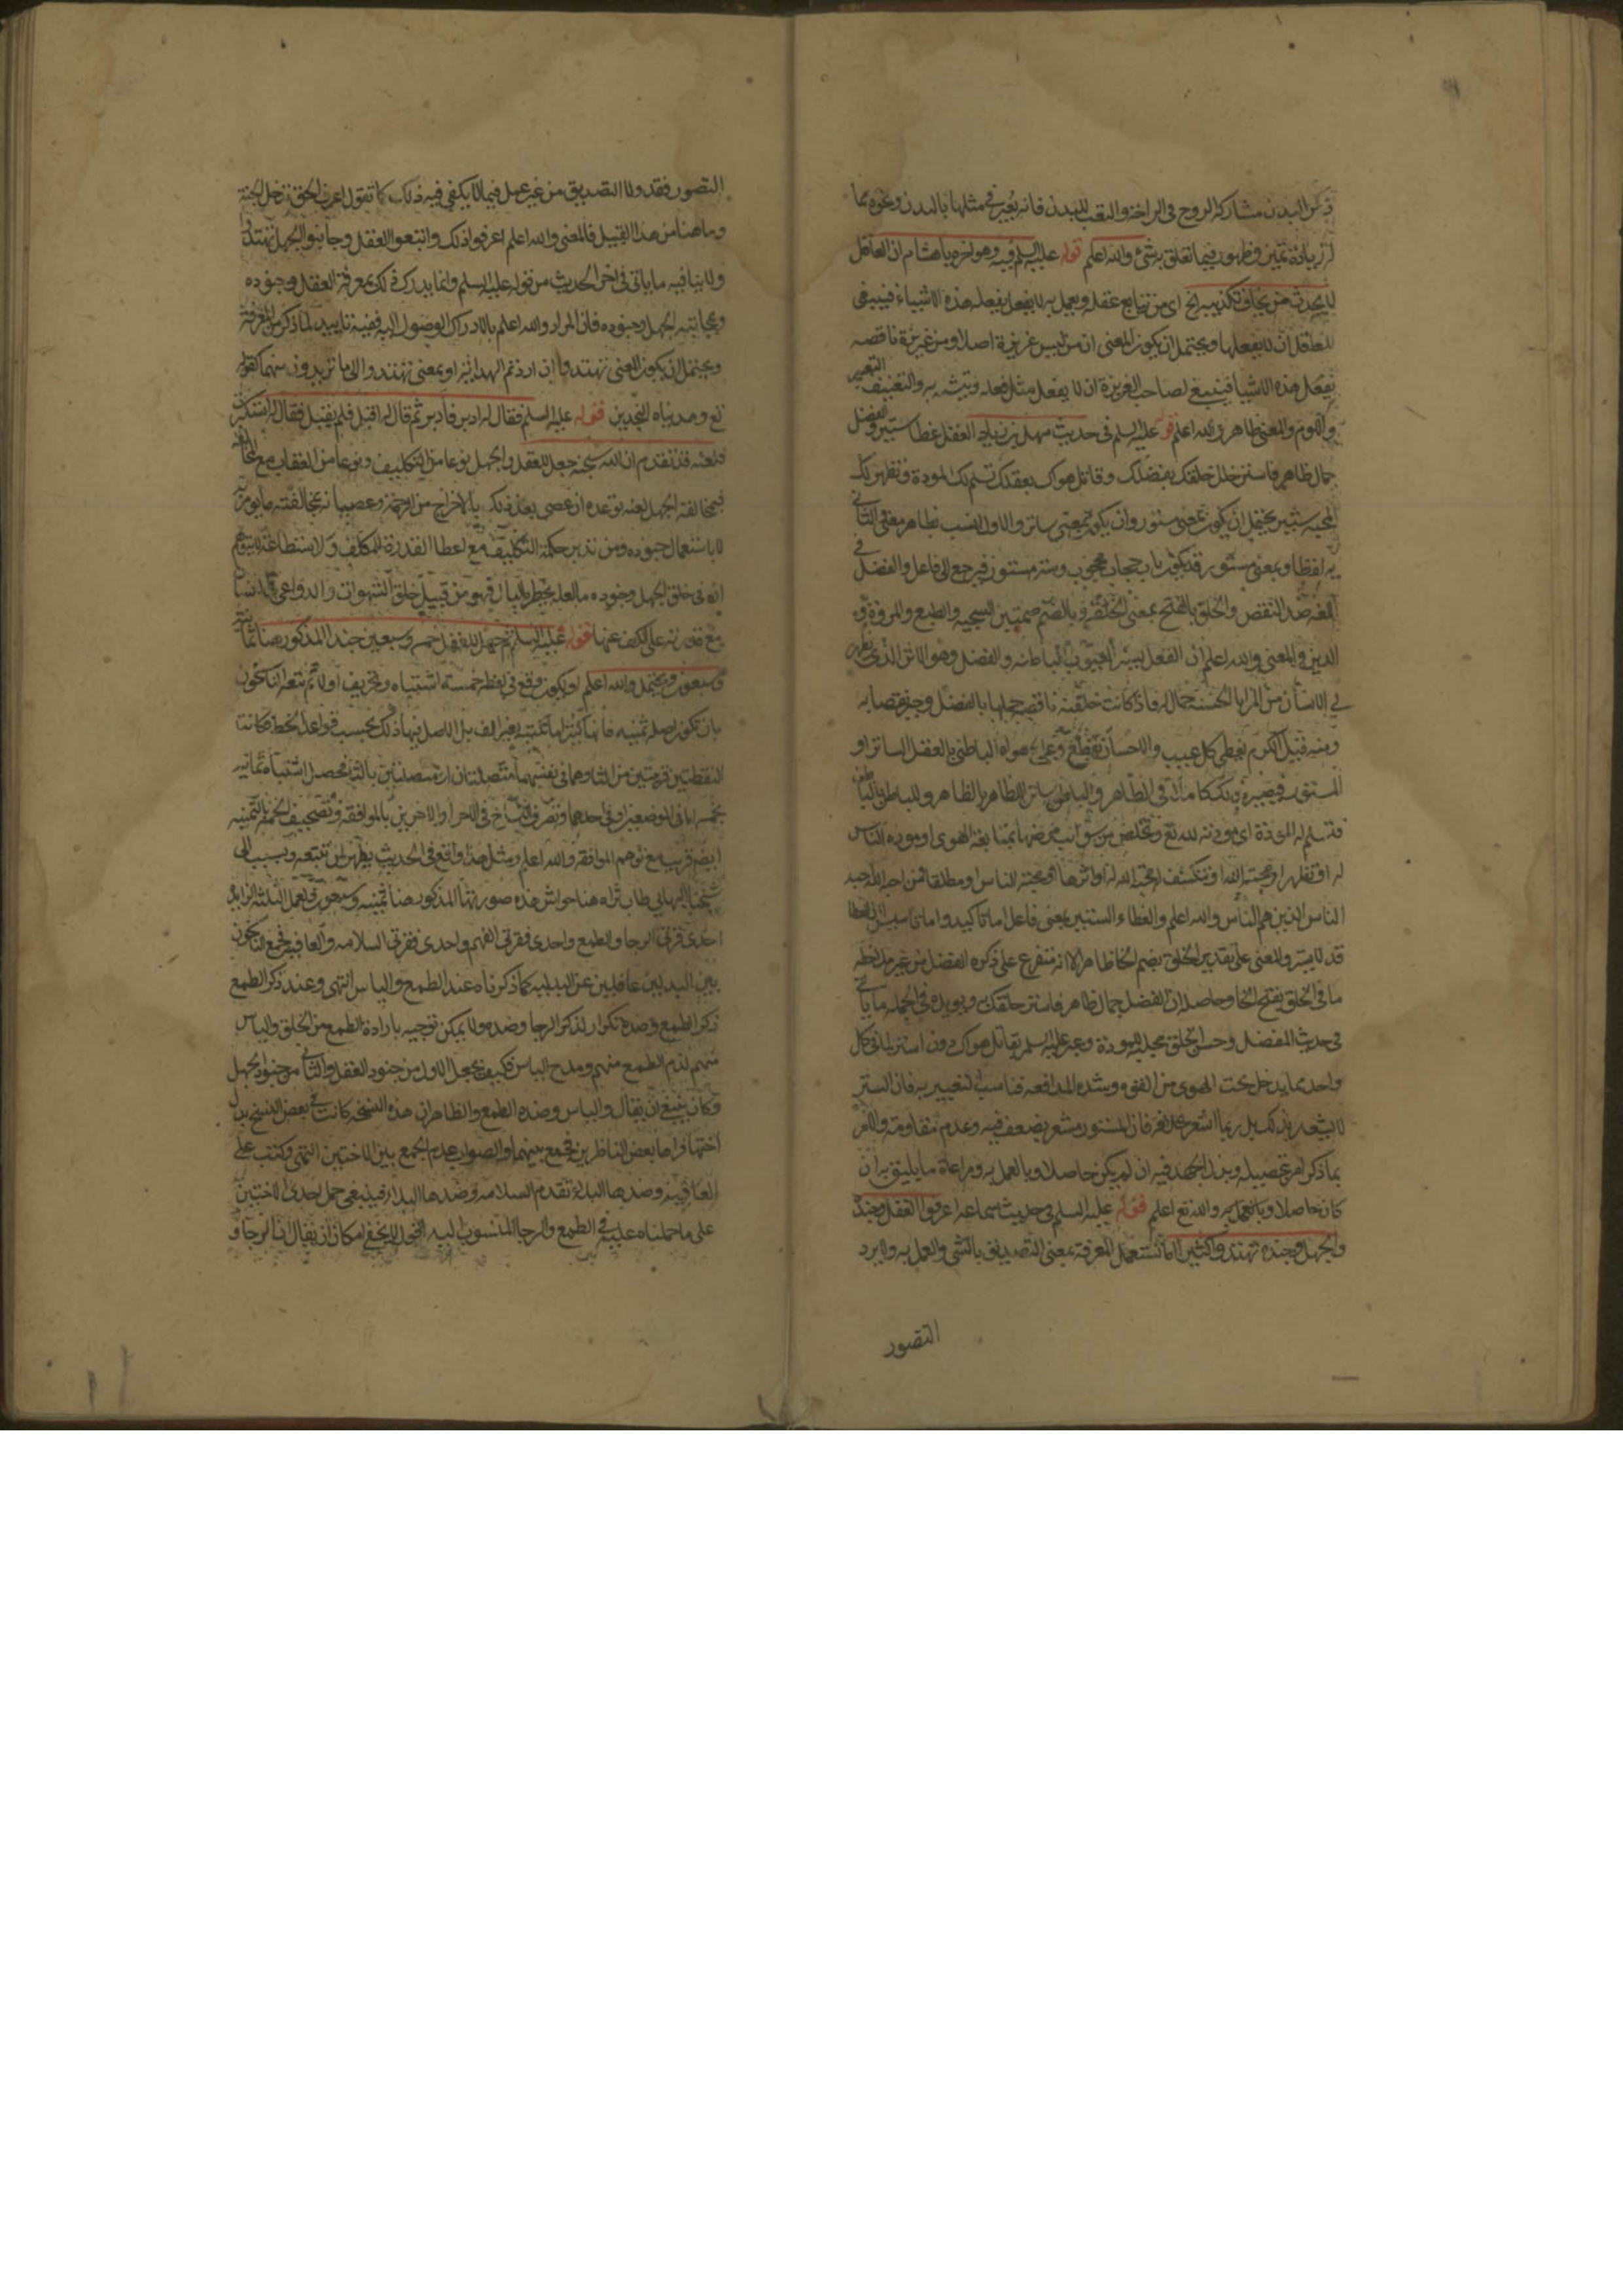 ذكر البدن مشاركة الروح في الراحة والتعب للبدن فانه يعبر في مثلها بالبدن ونحوه مما
له زيادة تميز وظهور فيما تعلق بشئ والله اعلم قوله عليه السلم فيه وهو اخره يا هشام ان العاقل
لا يحدث من يخاف تكذيبه الخ اي من يتابع عقله ويعمل به لا يفعل هذه الاشياء فينبغي
للعاقل ان لا يفعلها ويحتمل ان يكون المعنى ان من ليس غريزة اصلا ومن غريزة ناقصه
يفعل هذه الاشيا فينبغي لصاحب الغريزة ان لا يفعل مثل فعله ويتشبه به والتعنيف التعيير
واللوم والمعنى ظاهر والله اعلم قوله عليه السلم في حديث سهل بن زياد العقل غطا ستير والفضل
جمال ظاهر فاستر خلل خلقك بفضلك وقاتل هواك بعقلك تسلم لك المودة وتظهر لك
المحبه ستير يحتمل ان يكون بمعنى مستور وان يكون بمعنى ساتر والاول انسب بظاهر معنى الثاني
لفظا وبمعنى مستور قد يكون باب حجاب محجوب وستر مستور فيرجع الى فاعل والفضل في
اللغه ضد النقص والخلق بالفتح بمعنى الخلقة وبالضم وبضمتين السجيه والطبع والمروة و
الدين والمعنى والله اعلم ان العقل يستر العيوب الباطنه والفضل وهو الاثر الذي يظهر
في الانسان من المزايا الحسنة جمال له فاذا كانت خلقته ناقصه جملها بالفضل وجبر نقصها به
ومنه قيل الكرم يغطي كل عيب والاحسان يقطع هواه الباطني بالعقل الساتر او
المستور فيصير بذلك كاملا في الظاهر والباطن ساتر للظاهر بالظاهر وللباطن بالباطن
فتسلم له المودة اي مودته لله تع وتخلص من شوائب بمتابعة الهوى او موده الناس
له او تظهر له محبته الله او تنكشف له محبة الله له او اثرها او محبته للناس او مطلقا فمن احبه الله حبه
الناس الذين هم الناس والله اعلم والغطاء الستير بمعنى فاعل اما تاكيد واما تاسيس لان الغطا
قد لا يستر والمعنى على تقدير الخلق بضم الخا ظاهر الا انه متفرع على ذكره الفضل من غير ملاحظه
ما في الخلق بفتح الخا وحاصله ان الفضل جمال ظاهر فاستر خلقك به ويؤيده في الجمله ما ياتي
في حديث المفضل وحسن الخلق مجلبه للمودة وعبر عليه السلم بقاتل هواك دون استر لما في كل
واحد مما يدخل تحت الهوى من القوه وشده المدافعه فناسب التعبير به فان الستر
لا يشعر بذلك بل ربما اشعر بخلافه فان المستور مشعر بضعف فيه وعدم مقاومة والامر
بما ذكر امر بتحصيله وبذل الجهد فيه ان لم يكن حاصلا وبالعمل به ومراعاة ما يليق به ان
كان حاصلا وبالعمل به والله تع اعلم قوله عليه السلم في حديث سماعه اعرفوا العقل وجنده
والجهل وجنده تهتدوا كثيرا ما تستعمل المعرفة بمعنى التصديق بالشئ والعمل به ولا يرد
التصور
التصور فقد ولا التصديق من غير عمل فيما لا يكفي فيه ذلك كما تقول اعرف الحق تدخل الجنة
وما هنا من هذا القبيل فالمعنى والله اعلم اعرفوا ذلك واتبعوا العقل وجانبوا الجهل تهتدوا
ولا ينافيه ما ياتي في اخر الحديث من قوله عليه السلم وانما يدرك ذلك بمعرفة العقل وجنوده
ومجانبة الجهل وجنوده فان المراد والله اعلم بالادراك الوصول اليه ففيه تاييد لما ذكر من المعرفة
ويحتمل ان يكون المعنى تهتدوا ان اردتم الهداية او بمعنى تهتدوا الى ما تريدون منهما كقوله
تع وهديناه النجدين قوله عليه السلم فقال له ادبر فادبر ثم قال له اقبل فلم يقبل فقال له استكبرت
فلعنه قد تقدم ان الله سبحنه جعل للعقل والجهل نوعا من التكليف ونوعا من العقاب مع المخالفة
فمخالفة الجهل لعنه توعده ان عصى بعد ذلك بالاخراج من الرحمة وعصيانه بمخالفته ما يؤمر به
لا باستعمال جنوده ومن تدبر حكمة التكليف مع اعطا القدرة للمكلف والاستطاعة لا يتوهم
انه في خلق الجهل وجنوده ما لعله يخطر بالبال فهو من قبيل خلق الشهوات والدواعي للانسان
مع قدرته على الكف عنها قوله عليه السلم ثم جعل للعقل خمسه وسبعين جندا المذكور هنا ثمانية
وسبعون ويحتمل والله اعلم ان يكون وقع في لفظ خمسة اشتباه وتحريف اولا ثم تبعه الناسخون
بان تكون اصله ثمنيه فانها كثيرا ما تكتب بغير الف بل الاصل فيها ذلك بحسب قواعد الخط فكانت
النقطتين قريبتين من الثا وهما في نفسهما متصلتان او متصلتين بالثا فحصل اشتباه ثمانيه
بخمسه اما في الموضعين او في احدهما وتصرف النساخ في الاخر او الاخرين بالموافقه وتصحيف الخمسه بالثمنيه
ايضا قريب مع توهم الموافقه والله اعلم ومثل هذا واقع في الحديث يظهر لمن تتبعه ونسب الى
شيخنا البهائي طاب ثراه هنا حواش هذه صورتها المذكور هنا ثمنيه وسبعون ولعل الثلثه الزايده
احدى فقرتي الرجا والطمع واحدى فقرتي الفهم واحدى فقرتي السلامه والعافيه فجمع الناسخون
بين البدلين غافلين عن البدليه كما ذكرناه عند الطمع والياس انتهى وعند ذكر الطمع
ذكر الطمع وضده تكرار لذكر الرجا وضده ولا يمكن توجيه بارادة الطمع من الخلق والياس
منهم لذم الطمع منهم ومدح الياس فكيف يجعل الاول من جنود العقل والثاني من جنود الجهل
وكان ينبغي ان يقال والياس وضده الطمع والظاهر ان هذه النسخه كانت في بعض النسخ بدل
اختها فراها بعض الناظرين فجمع بينهما والصواب عدم الجمع بين الاختين انتهى وكتب على
العافيه وضدها البلاء تقدم السلامه وضدها البلاء فينبغي حمل احدى الاختين
على ما حملناه عليه في الطمع والرجا المنسوب اليه لا يخفى امكان ان يقال ان الرجا و